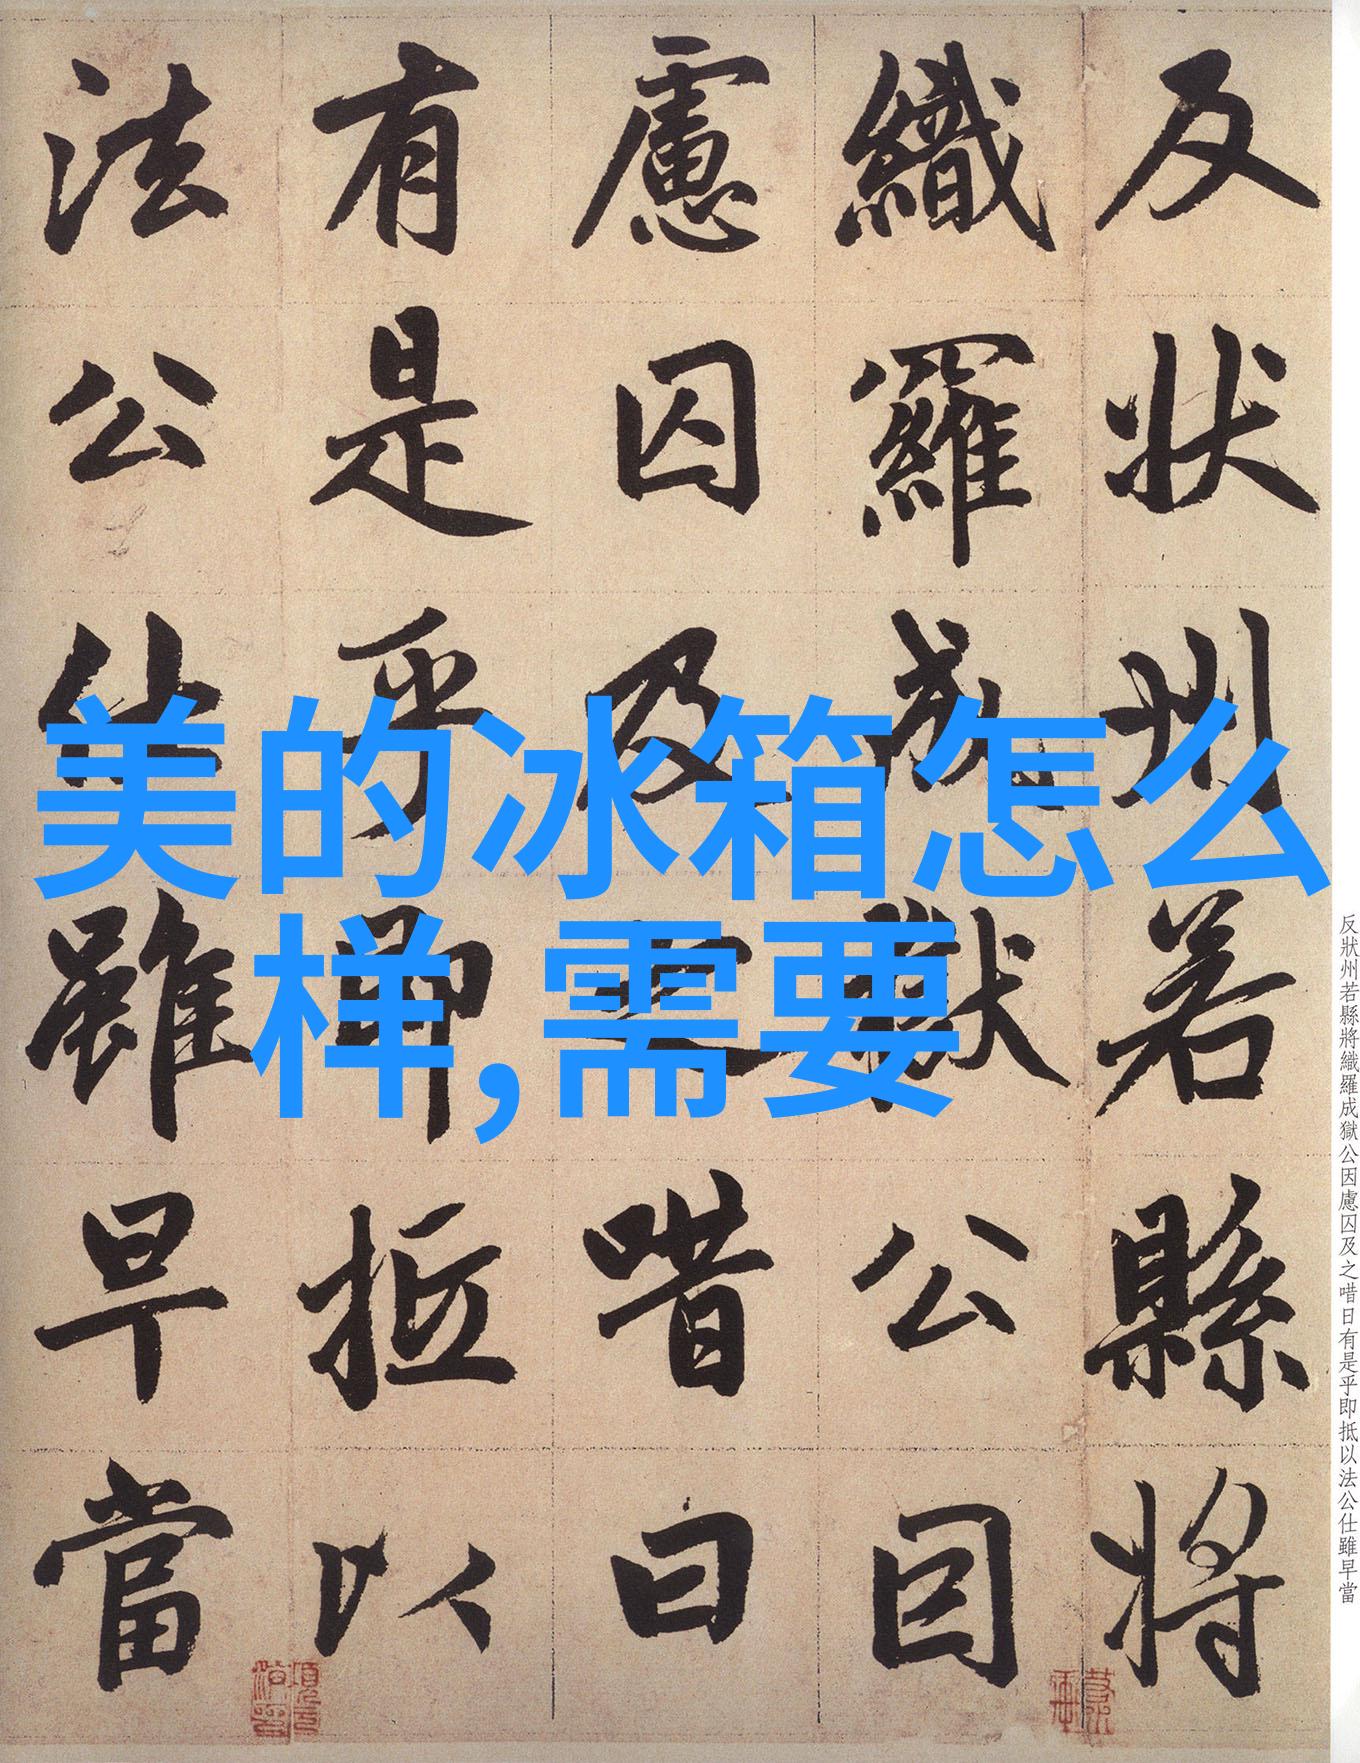 美的冰箱怎么
样,需要
反状州若縣將
織羅成獄公因
慮囚及之唶曰
有是乎即抵以
法公仕雖早當
反狀州若縣將織羅成獄公因慮囚及之唶日有是乎即抵以法公仕雖早當